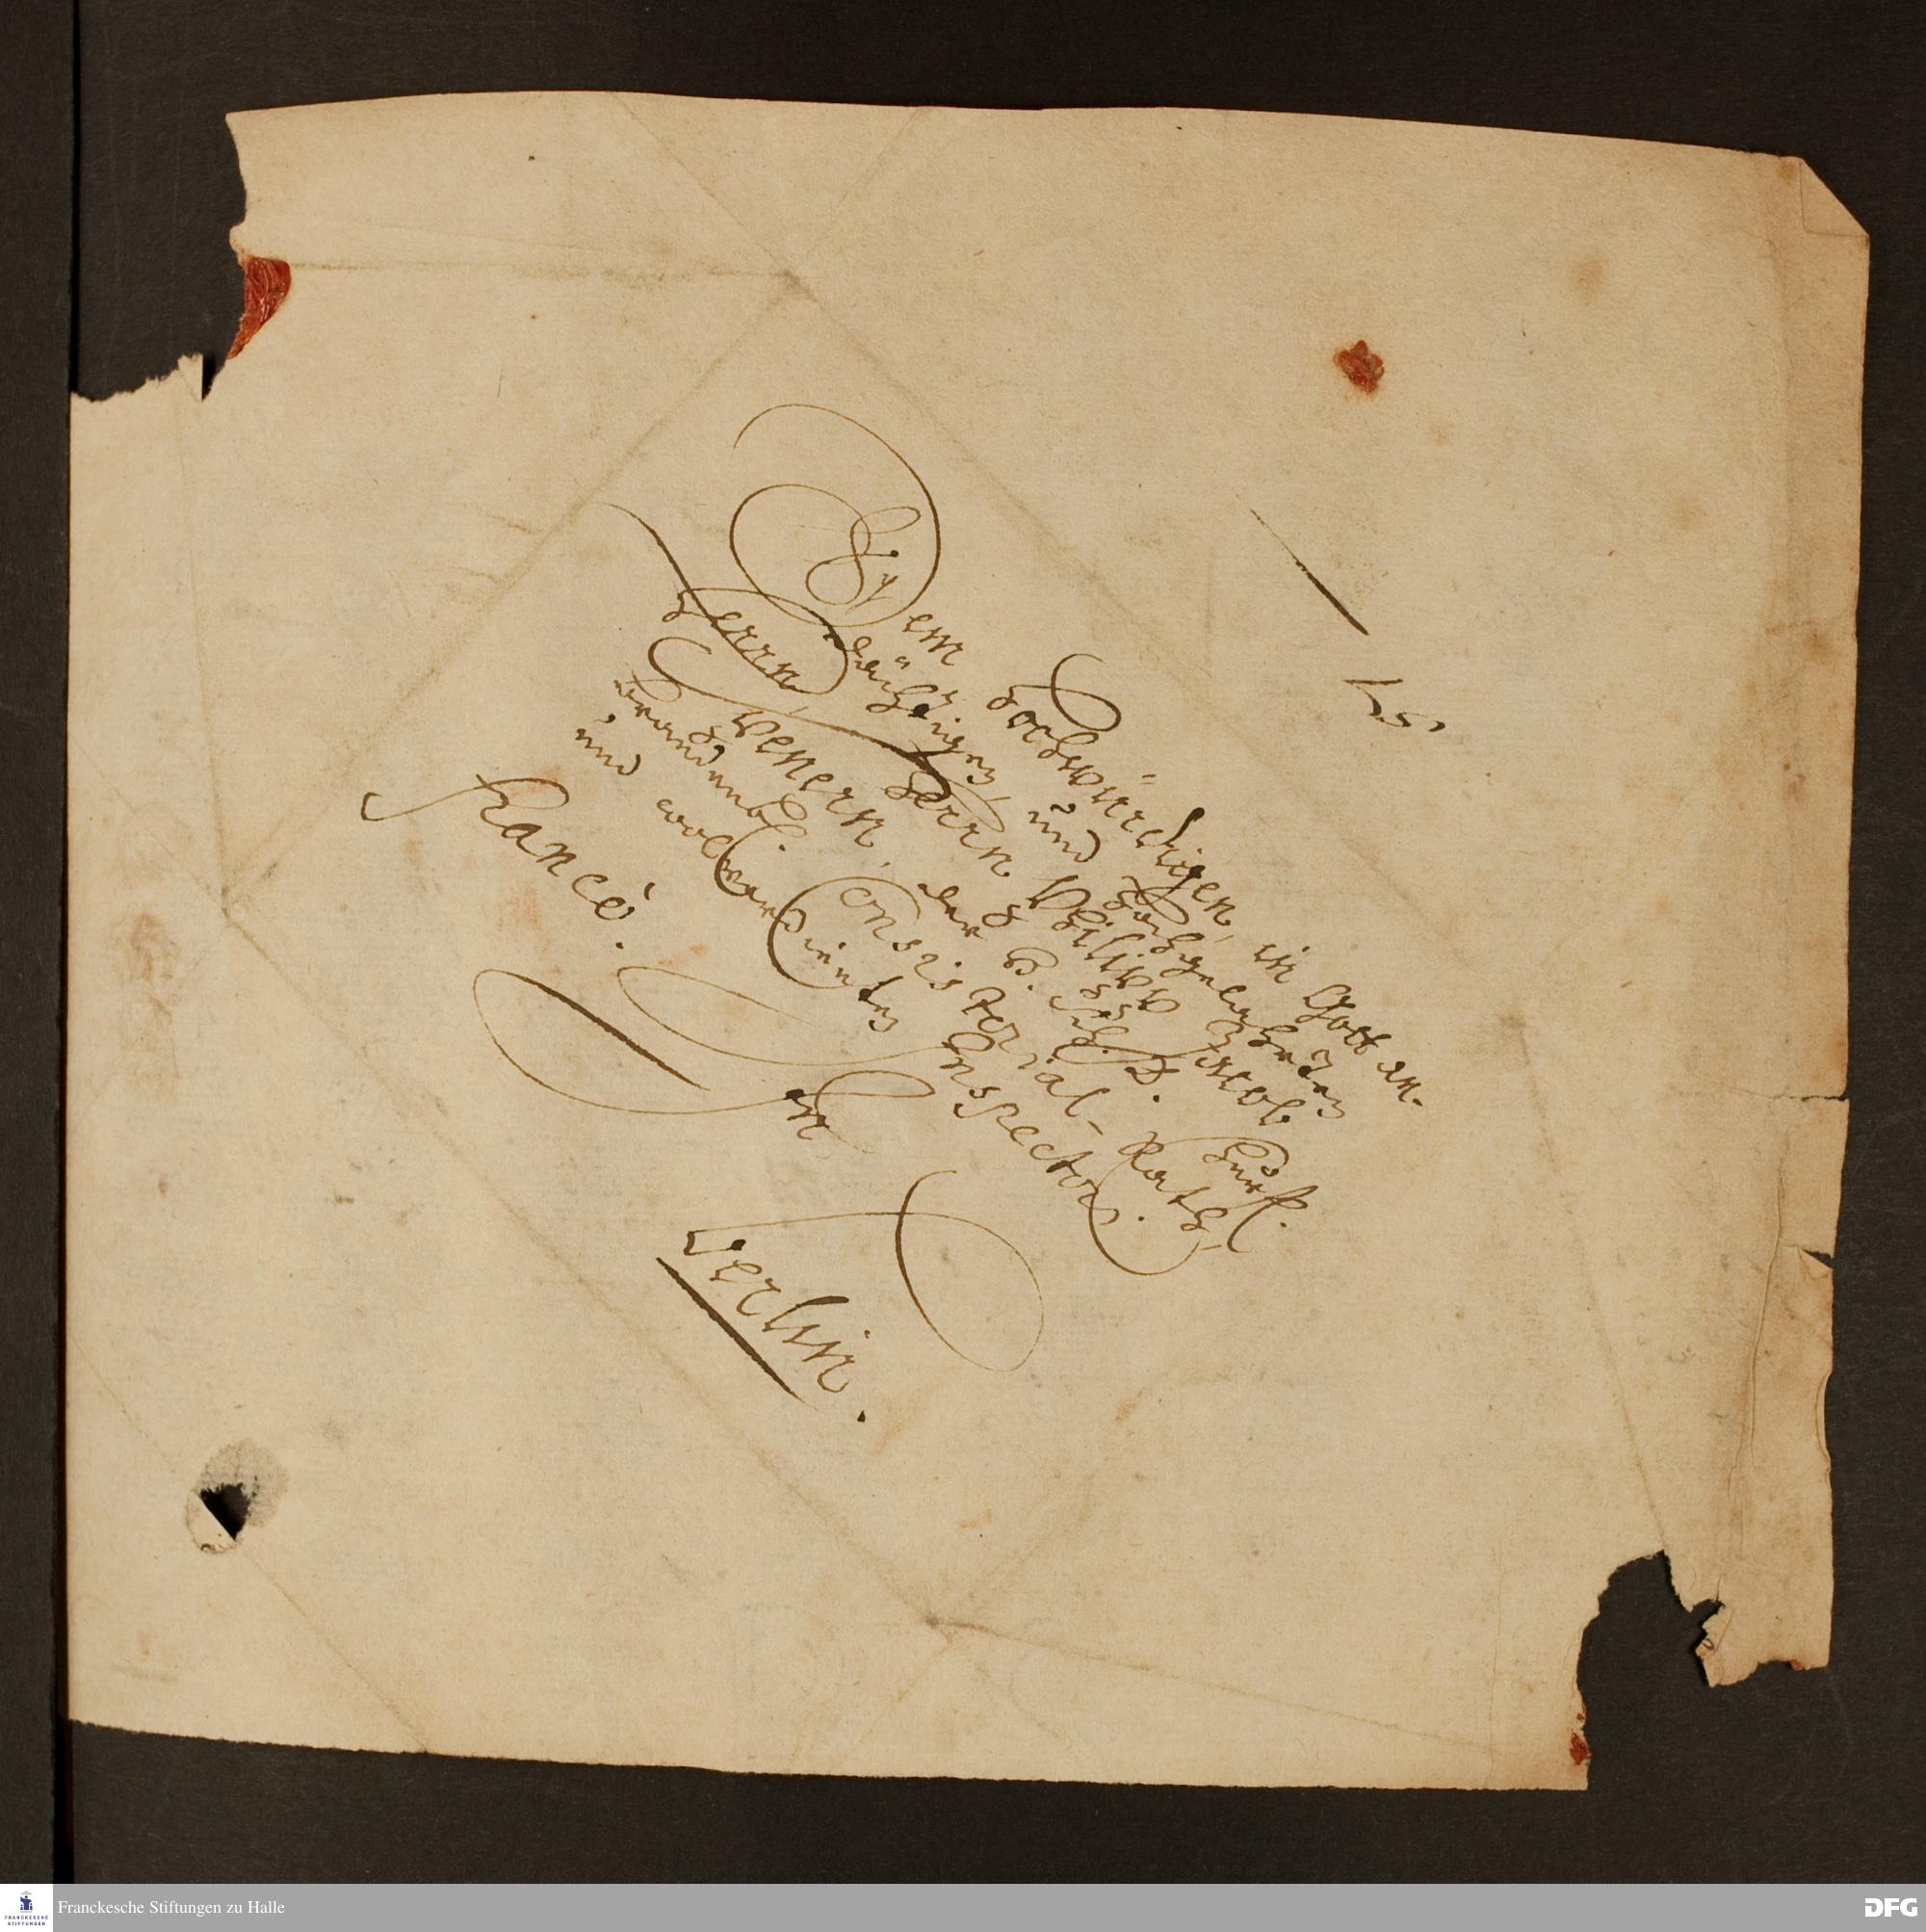 Dem Hochwürdigen, in Gott an-
dächtigen, und Hochgelahrten
Herrn, Herrn Philipp Jacob
Spenern, der H. Schr. D. Churfl.
Brandenbl. Consistorial-Rath,
und wolverdienten Inspectori.
Franco.
in
Berlin.
Franckesche Stiftungen zu Halle
FRANCKESCHE
STIFTUNGEN
DFG